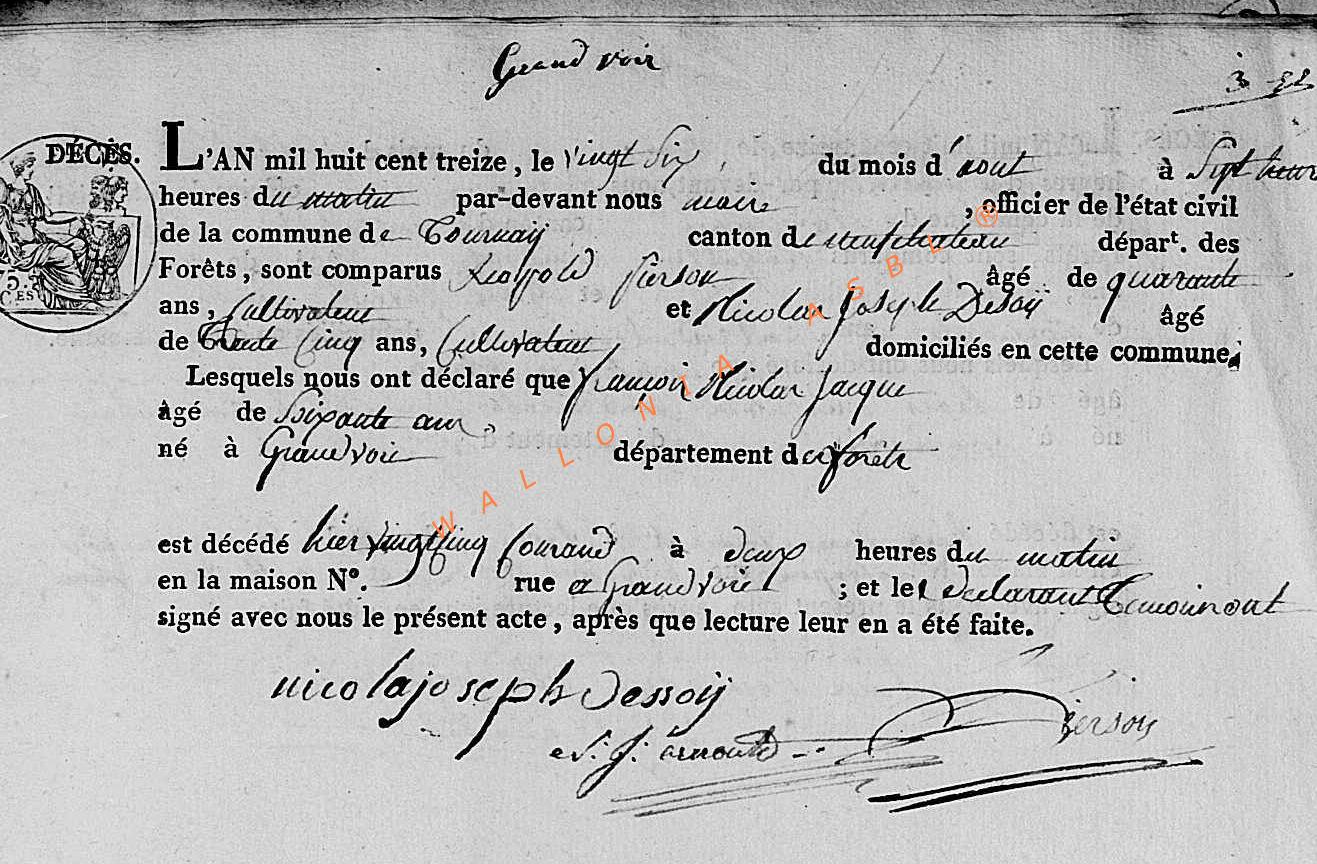 Grand voir
3
DÉCÈS. L'AN mil huit cent treize, le vingt Six du mois d'aout à Sept heures
heures du matin par-devant nous maire, officier de l'état civil
de la commune de Tournay canton de neufchateau départ. des
Forêts, sont comparus Leopold Pierson âgé de quarante
ans, Cultivateur et Nicolas Joseph Dessoÿ âgé
de trente Cinq ans, Cultivateur, domiciliés en cette commune,
Lesquels nous ont déclaré que françois Nicolas Jacque
âgé de Soixante ans,
né à Grandvoir département des forêts
est décédé hier vingt cinq Courand à deux heures du matin
en la maison N°. rue a Grandvoir ; et les declarant temoin ont
signé avec nous le présent acte, après que lecture leur en a été faite.
nicolajoseph Dessoÿ
Pierson
J. arnould
75.
CES
WALLONIA ASBL ®